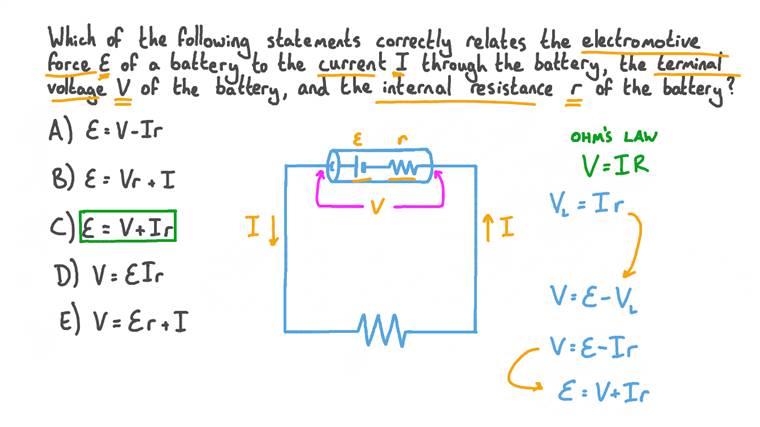 Which of the following statements correctly relates the electromotive
force ε of a battery to the current I through the battery, the terminal
voltage V of the battery, and the internal resistance r of the battery?
A) ε = V - Ir
B) ε = Vr + I
C) ε = V + Ir
D) V = εIr
E) V = εr + I
ε r
V
I
I
OHM'S LAW
V = IR
V_L = Ir
V = ε - V_L
V = ε - Ir
ε = V + Ir